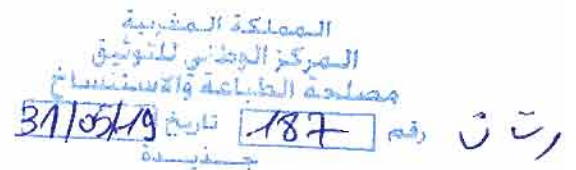 المملكة المغربية
المركز الوطني للتوثيق
مصلحة الطباعة والاستنساخ
رقم 187 تاريخ 31/05/19
جــذيــدة